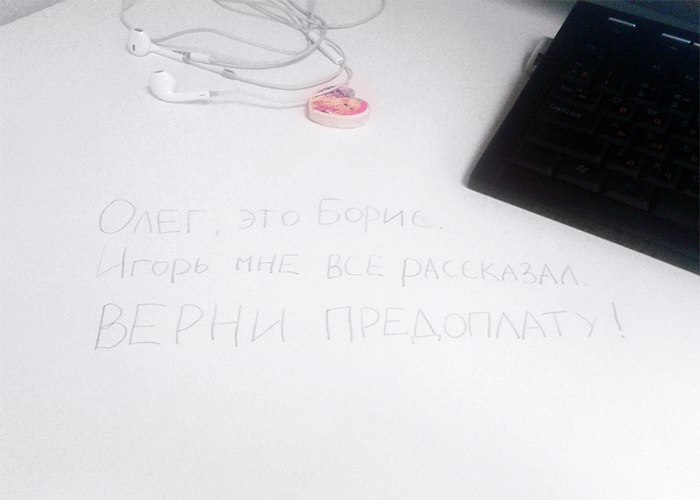 Олег, это Борис.
Игорь мне все рассказал.
ВЕРНИ ПРЕДОПЛАТУ!